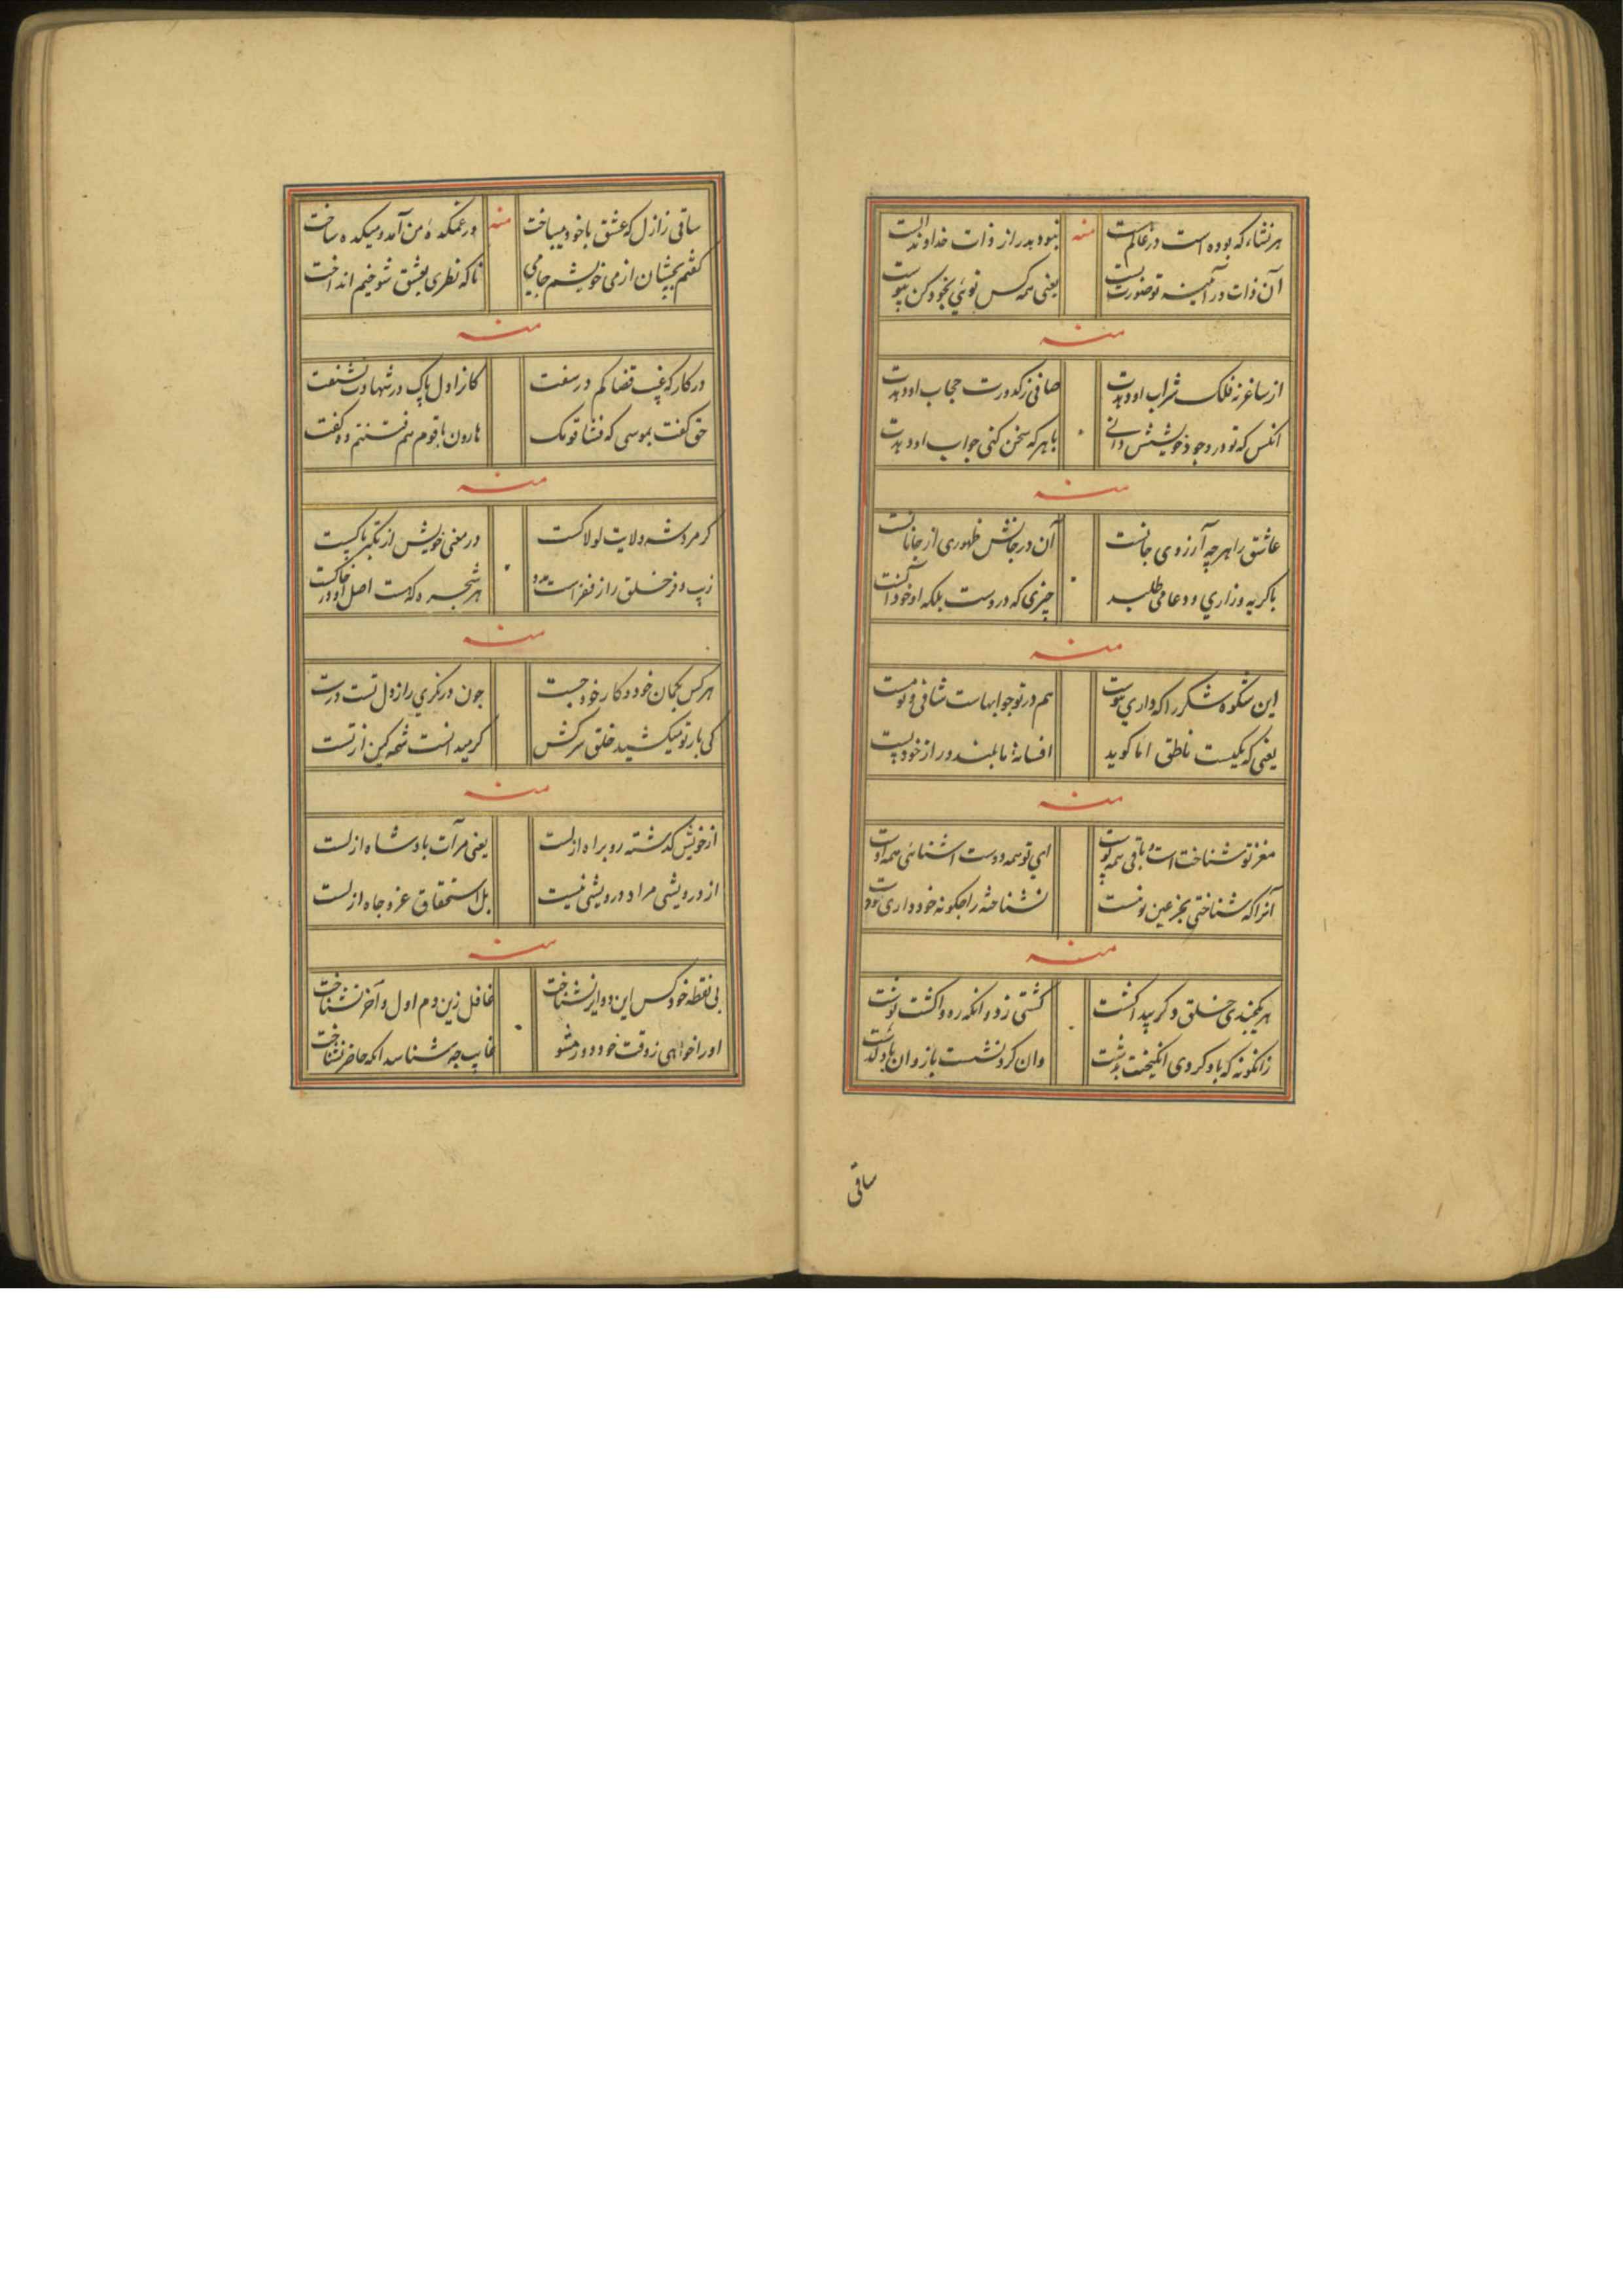 هر نشاء که بوده است در عالم هست منه نبود بدر از ذات خداوند الست
آن ذات در آینه تو صورت بست یعنی همه کس توئی بخود کن پیوست
منه
از ساغر نه فلک شراب او وبدت صافی ز کدورت حجاب او وبدت
انکس که تو در وجود خویشش دانی با هر که سخن کنی جواب او وبدت
منه
عاشق را هر چه آرزوی جانست آن در جانش ظهوری از جانانست
با کریه و زاری و دعا می طلبد چیزی که دروست بلکه او خود آنست
منه
این شکوه شکر را که داری هم در تو جوابهاست شافی و نومست
یعنی که یکیست ناطق اما کوید افسانهٔ ما بلند و راز خود پست
منه
مغز تو شناخت است باقی همه پوست ای تو همه دوست اشنائی همه اوست
آنرا که شناختی بجز عین تو نیست نشناخته را چکونه خود داری دوست
منه
هر یکچندی خلق دکر پیدا کشت کشتی زد و انکه ره واکشت نوشت
زانکونه که باد کردی انکیخت بدشت وان کرد نشست باز وان باد کذشت
ساقی
ساقی ز ازل که عشق با خود میباخت منه در غمکدهٔ من آمد و میکده ساخت
کفتم بچشان از می خویشم جامی ناکه نظری بعشق شوخیم انداخت
منه
در کارکه غیب قضا کم در سفت کاز اول پاک در شهادت نشنفت
حق کفت بموسی که فتنا قومک هارون با قوم هم فتنتم وه کفت
منه
کر مرد شه ولایت لولاکست در معنی خویش از تکبر پاکیست
زیب و فر خلق را ز فقر است مدد هر شجره که هست اصل او در خاکست
منه
هر کس بکمان خود و کار خود جست چون در نکری راز دل تست درست
کی بار تو میکشید خلق سرکش کر میدانست شمه کین از تست
منه
از خویش کذشته رو براه ازلست یعنی مرآت بادشاه ازلست
از درویشی مراد درویشی نیست بل استحقاق عز و جاه ازلست
منه
بی نقطه خود کس این دوایر نشناخت غافل زین دم اول و آخر نشناخت
او را خواهی ز وقت خود دور مشو غایب چه شناسد انکه حاضر نشناخت